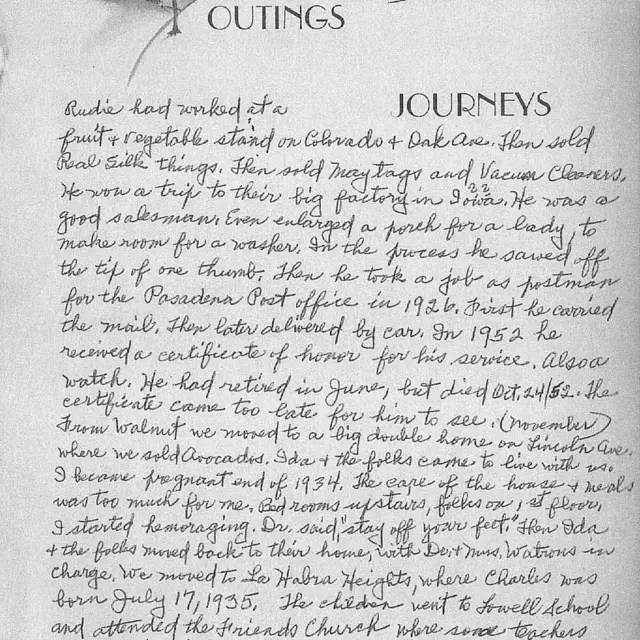 OUTINGS
JOURNEYS
Rudie had worked at a
fruit + vegetable stand on Colorado + Oak Ave. Then sold
Real Silk things. Then sold Maytags and Vacuum Cleaners.
He won a trip to their big factory in Iowa.?? He was a
good salesman. Even enlarged a porch for a lady, to
make room for a washer. In the process he sawed off
the tip of one thumb. Then he took a job as postman
for the Pasadena Post office in 1926. First he carried
the mail. Then later delivered by car. In 1952 he
received a certificate of honor for his service. Also a
watch. He had retired in June, but died Oct, 24/52. The
certificate came too late for him to see. (November)
From Walnut we moved to a big double home on Lincoln Ave.
where we sold Avocados. Ida + the folks came to live with us.
I became pregnant end of 1934. The care of the house + meals
was too much for me. Bed rooms upstairs, folks on 1st floor.
I started hemoraging. Dr. said "stay off your feet." Then Ida
+ the folks moved back to their home, with Dr. + Mrs. Watsons in
charge. We moved to La Habra Heights, where Charles was
born July 17, 1935. The children went to Lowell School
and attended the Friends Church where some teachers